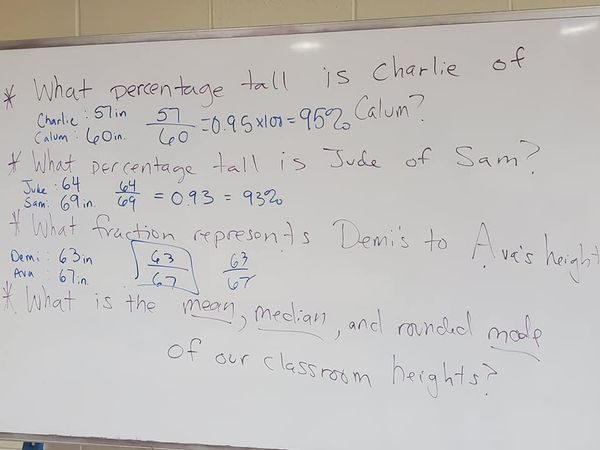 * What percentage tall is Charlie of
Charlie : 57in 57/60 = 0.95 x100 = 95% Calum?
Calum : 60in.
* What percentage tall is Jude of Sam?
Jude : 64 64/69 = 0.93 = 93%
Sam: 69in.
* What fraction represents Demi's to Ava's height
Demi : 63in 63/67 63/67
Ava : 67in.
* What is the mean, median, and rounded mode
of our classroom heights?